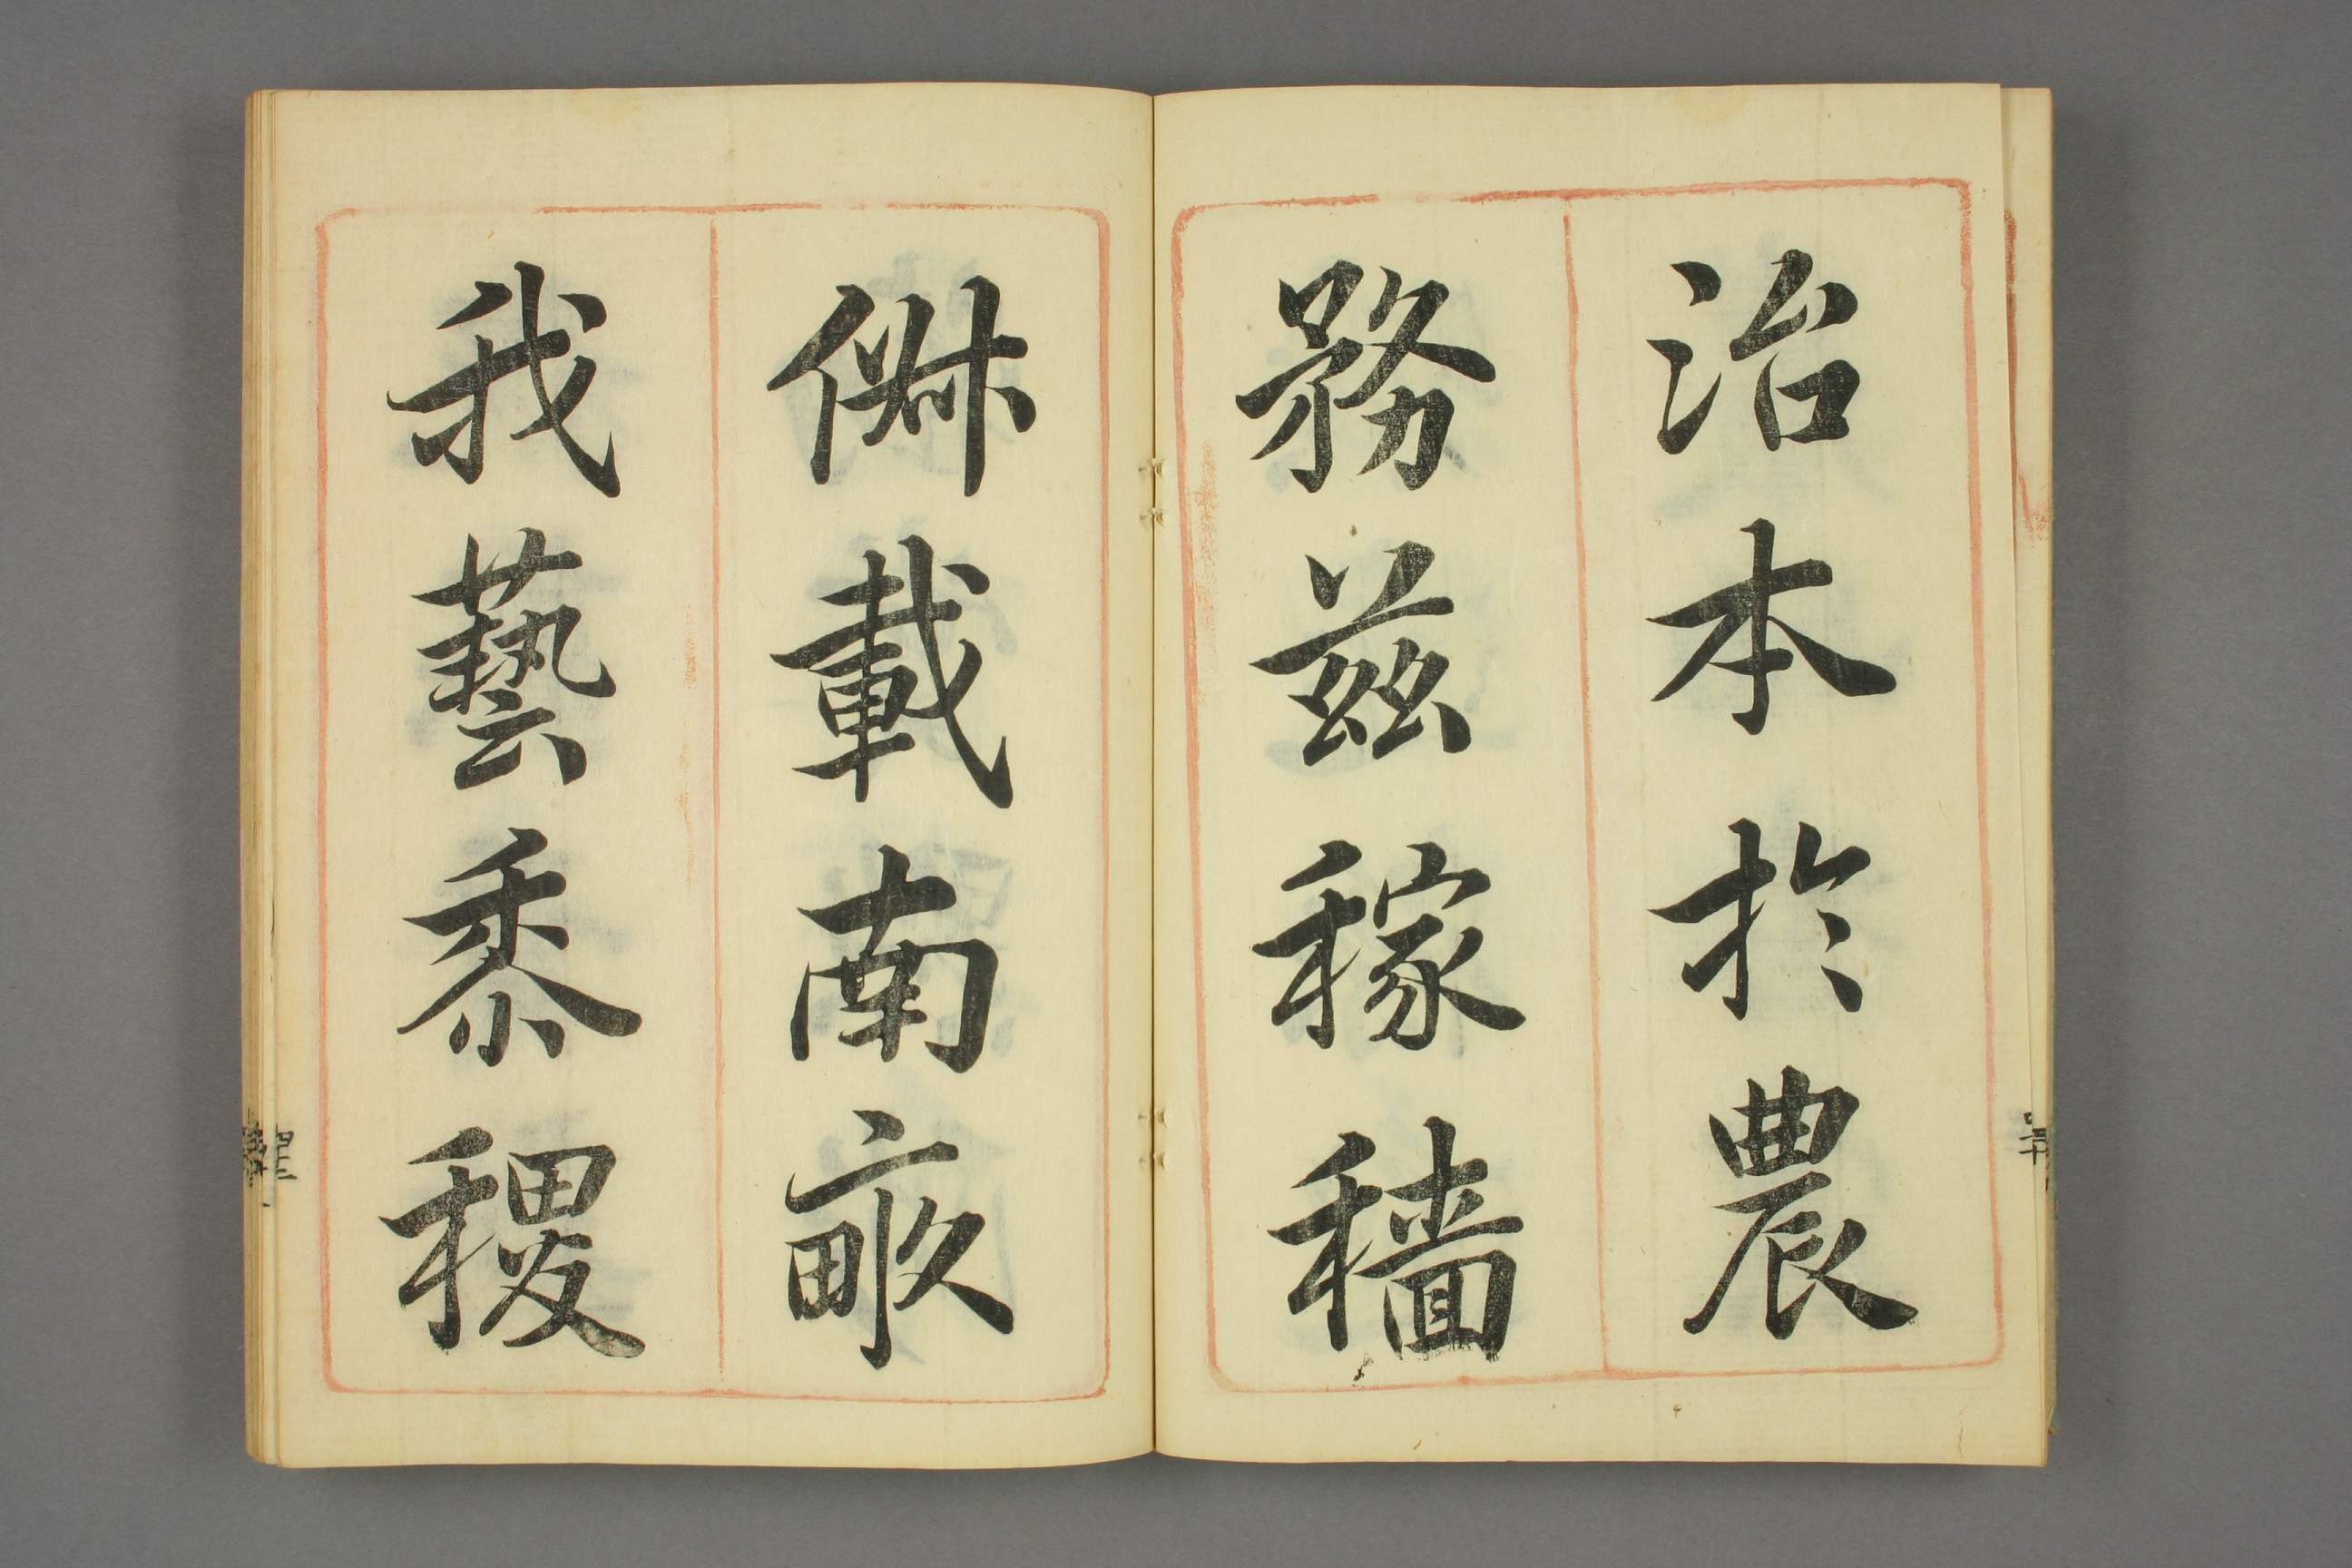 治本於農
務茲稼穡
俶載南畝
我藝黍稷